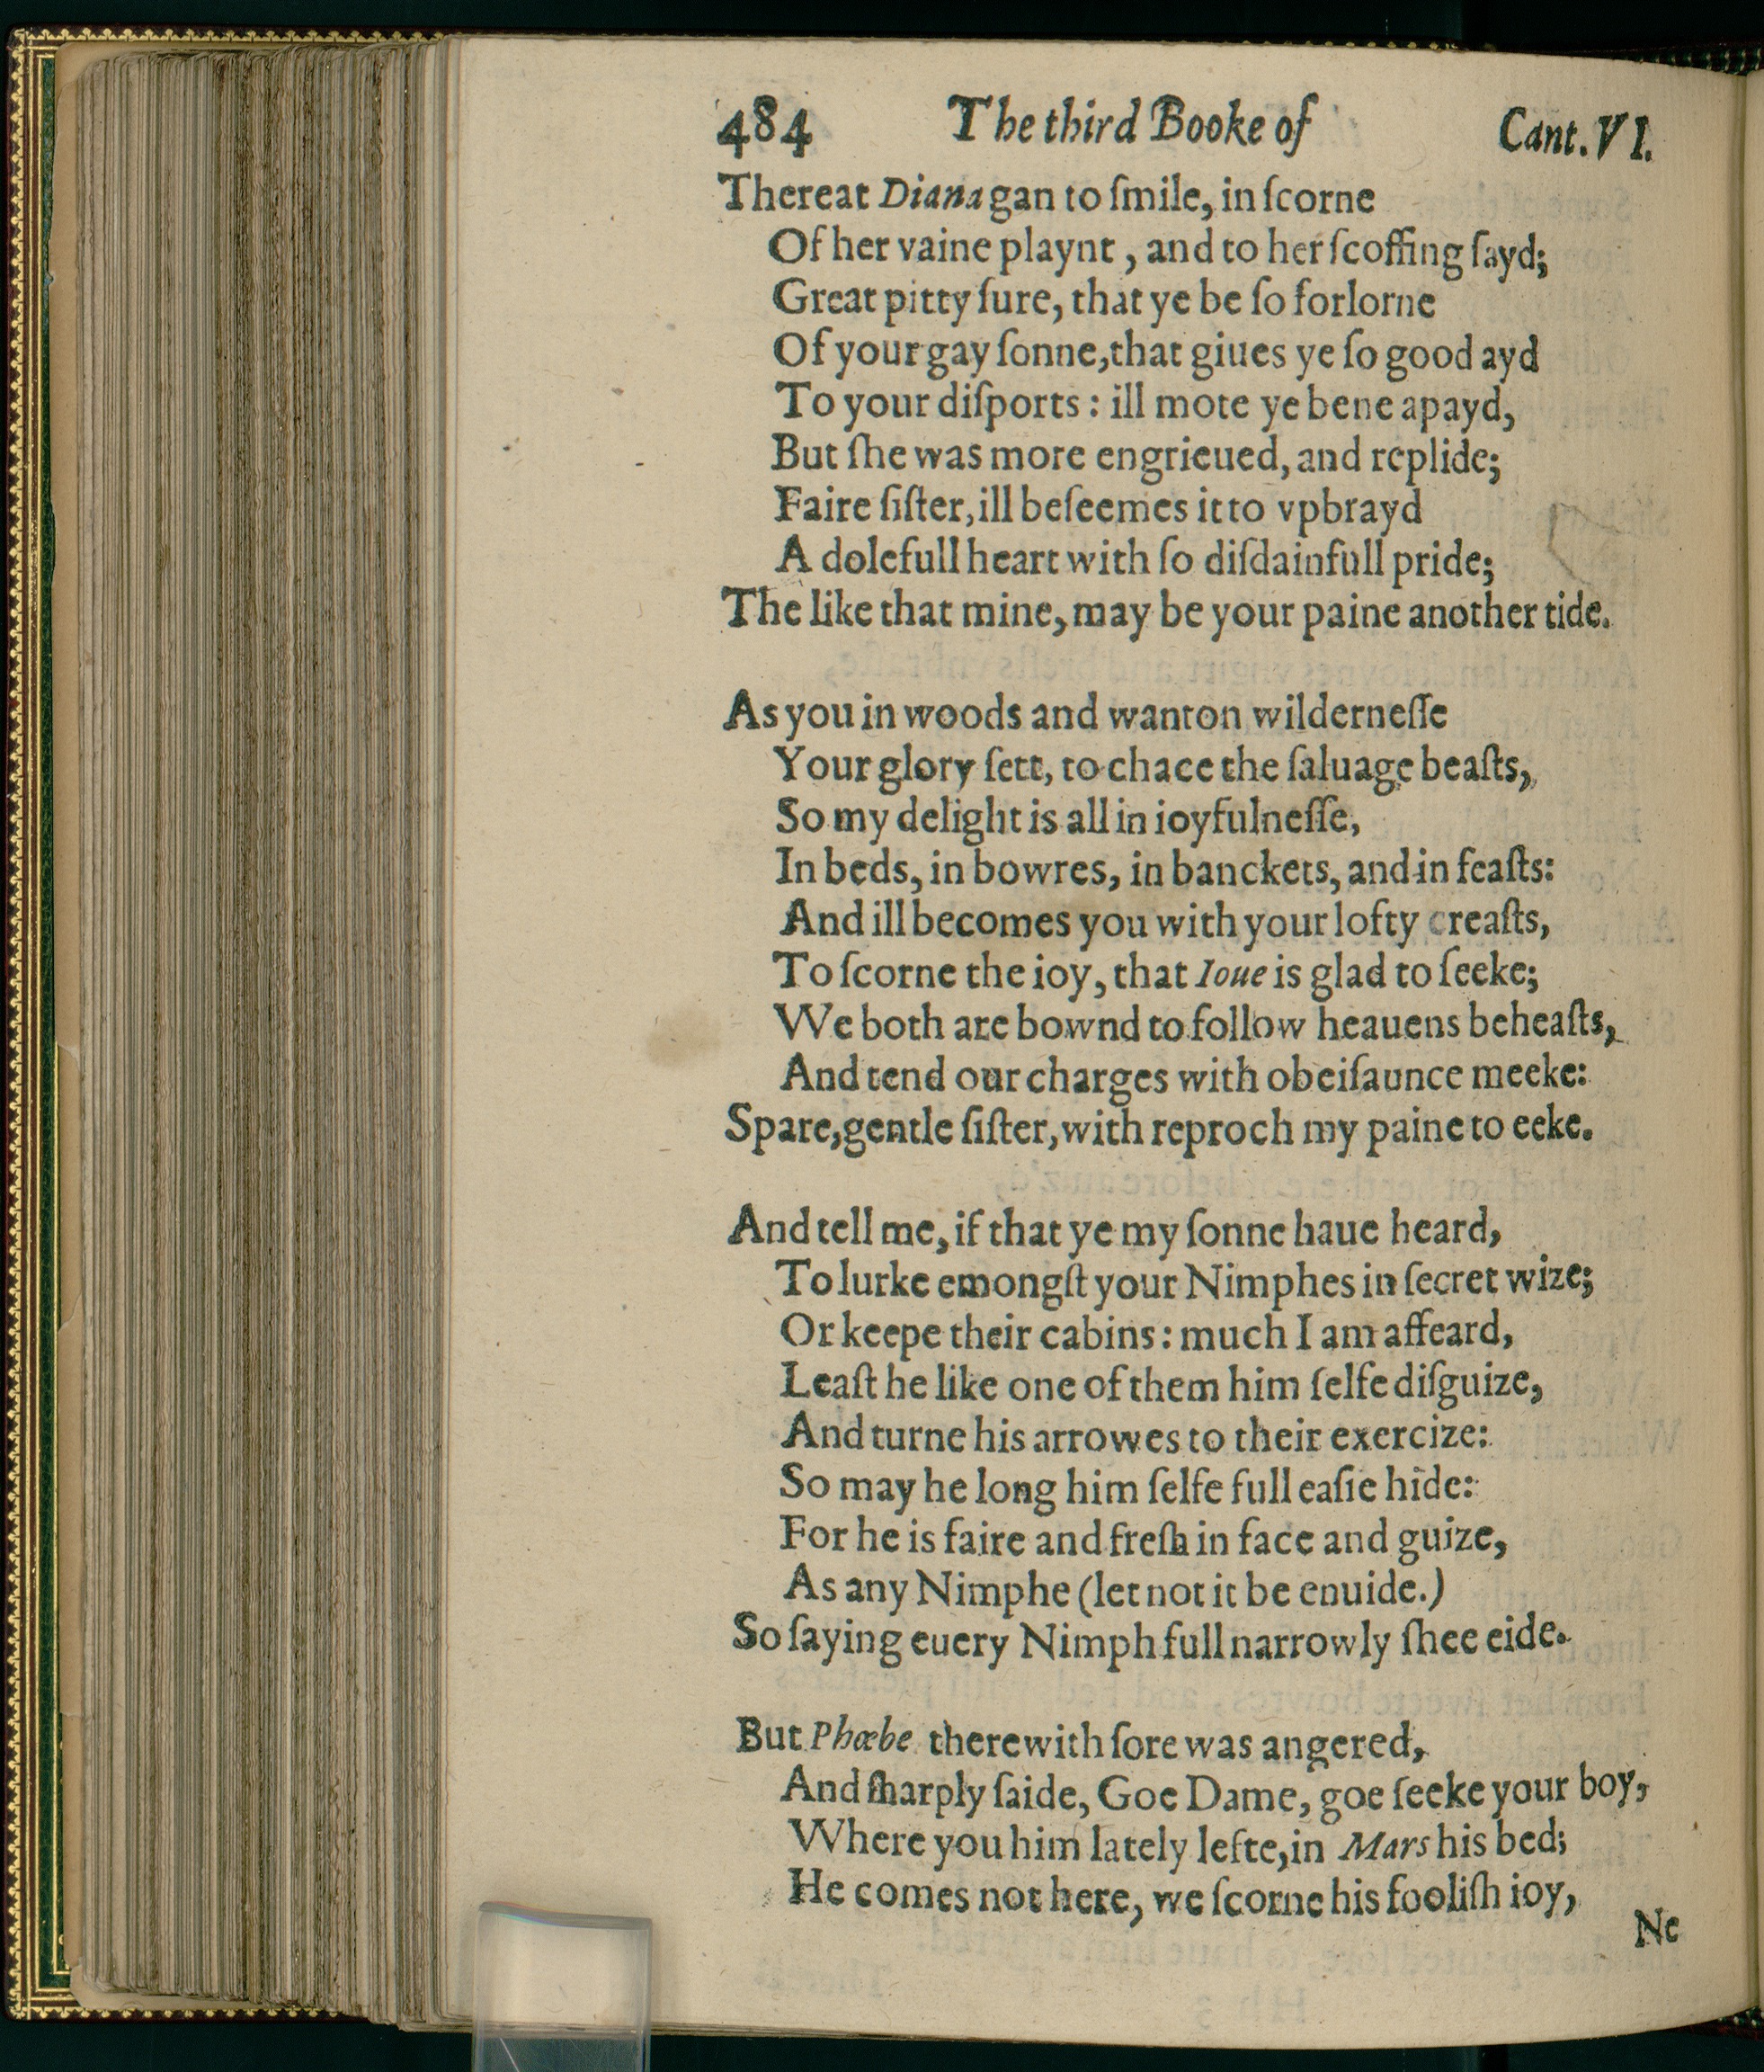 484 The third Booke of Cant. VI.
Thereat Diana gan to ſmile, in ſcorne
Of her vaine playnt, and to her ſcoffing ſayd;
Great pitty ſure, that ye be ſo forlorne
Of your gay ſonne, that giues ye ſo good ayd
To your diſports: ill mote ye bene apayd,
But ſhe was more engrieued, and replide;
Faire ſiſter, ill beſeemes it to vpbrayd
A dolefull heart with ſo diſdainfull pride;
The like that mine, may be your paine another tide.
As you in woods and wanton wilderneſſe
Your glory ſett, to chace the ſaluage beaſts,
So my delight is all in ioyfulneſſe,
In beds, in bowres, in banckets, and in feaſts:
And ill becomes you with your lofty creaſts,
To ſcorne the ioy, that Ioue is glad to ſeeke;
We both are bownd to follow heauens beheaſts,
And tend our charges with obeiſaunce meeke:
Spare, gentle ſiſter, with reproch my paine to eeke.
And tell me, if that ye my ſonne haue heard,
To lurke emongſt your Nimphes in ſecret wize;
Or keepe their cabins: much I am affeard,
Leaſt he like one of them him ſelfe diſguize,
And turne his arrowes to their exercize:
So may he long him ſelfe full eaſie hide:
For he is faire and freſh in face and guize,
As any Nimphe (let not it be enuide.)
So ſaying euery Nimph full narrowly ſhee eide.
But Phœbe therewith ſore was angered,
And ſharply ſaide, Goe Dame, goe ſeeke your boy,
Where you him lately lefte, in Mars his bed;
He comes not here, we ſcorne his fooliſh ioy,
Ne